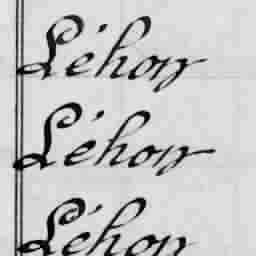 Léhon
Léhon
Léhon